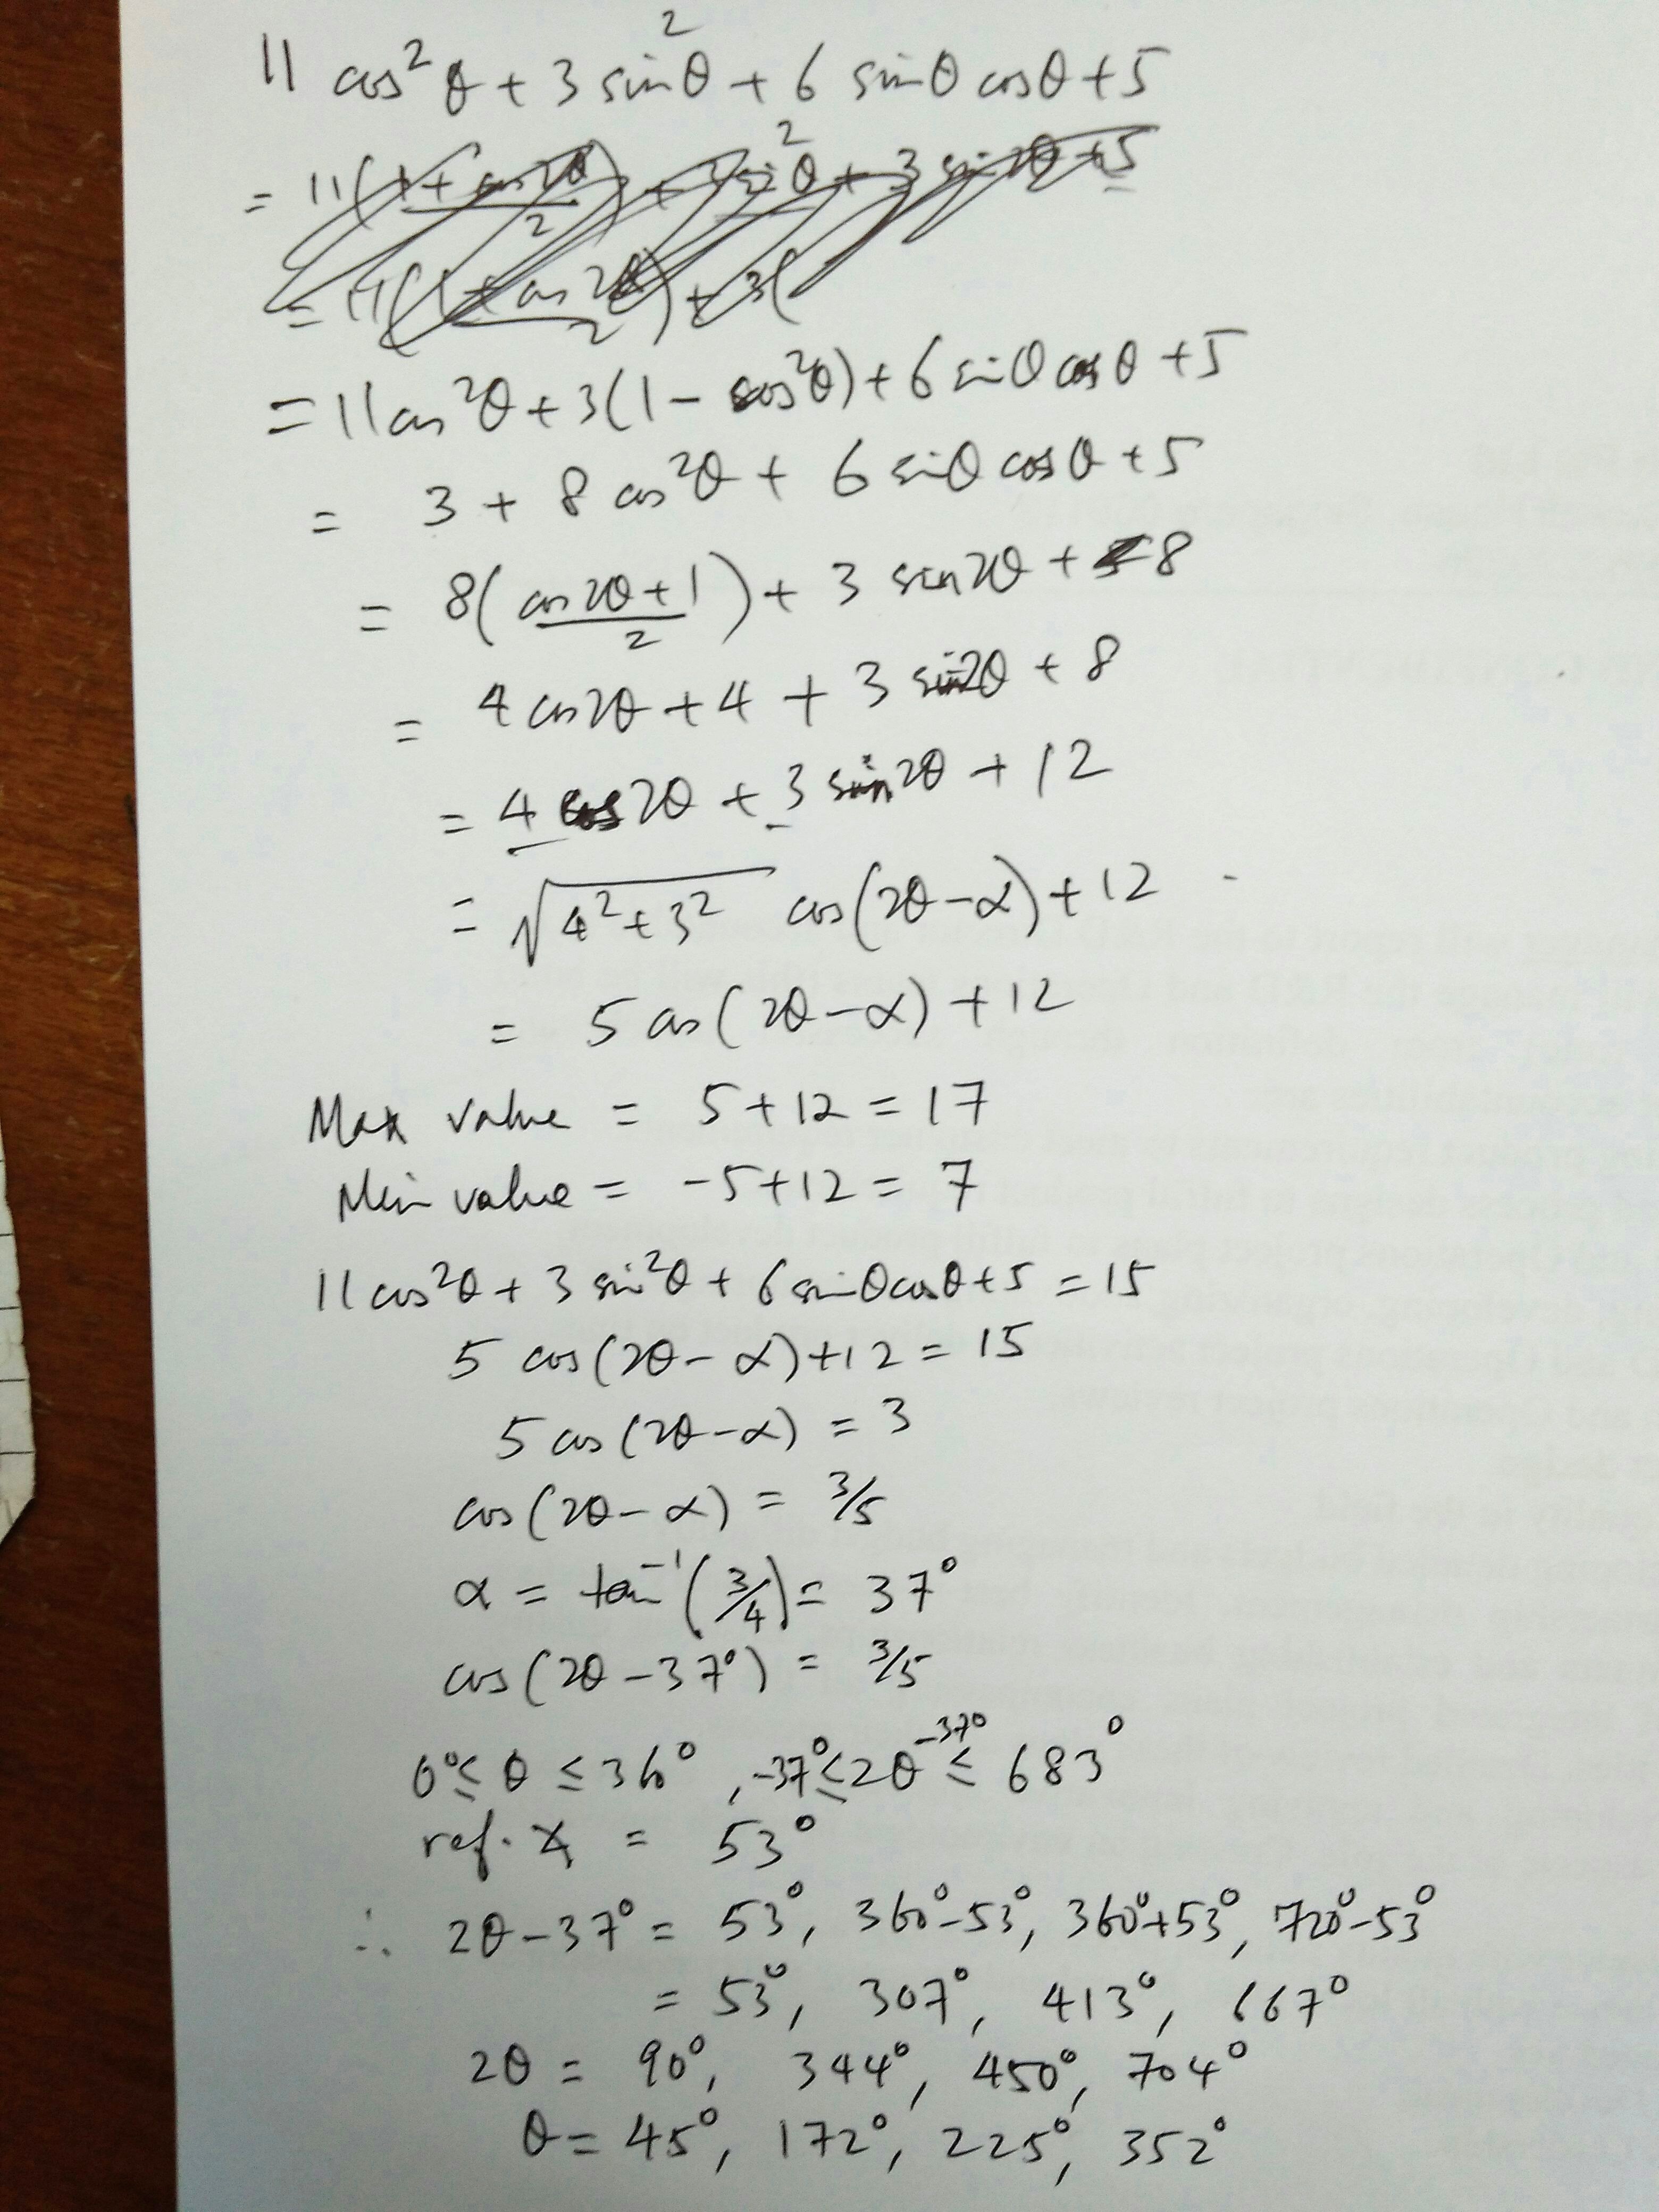 11 cos²θ + 3 sin²θ + 6 sinθ cosθ + 5
= 11(1+cos2θ/2) + 3sin²θ + 3 sin2θ + 5
= 11(1+cos2θ/2) + 3(
= 11cos²θ + 3(1 - cos²θ) + 6 sinθ cosθ + 5
= 3 + 8 cos²θ + 6 sinθ cosθ + 5
= 8(cos2θ+1/2) + 3 sin2θ + 8
= 4cos2θ + 4 + 3 sin2θ + 8
= 4 cos2θ + 3 sin2θ + 12
= √4²+3² cos(2θ-α) + 12
= 5 cos(2θ-α) + 12
Max value = 5+12 = 17
Min value = -5+12 = 7
11cos²θ + 3 sin²θ + 6sinθcosθ+5 = 15
5 cos(2θ-α)+12 = 15
5 cos(2θ-α) = 3
cos(2θ-α) = 3/5
α = tan⁻¹(3/4) = 37°
cos(2θ-37°) = 3/5
0°≤ θ ≤ 360°, -37°≤2θ-37°≤ 683°
ref. ∠ = 53°
∴ 2θ-37° = 53°, 360°-53°, 360°+53°, 720°-53°
= 53°, 307°, 413°, 667°
2θ = 90°, 344°, 450°, 704°
θ = 45°, 172°, 225°, 352°